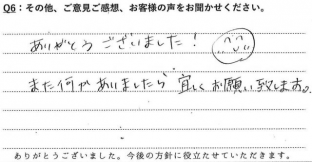 Q6：その他、ご意見ご感想、お客様の声をお聞かせください。
ありがとうございました！
また何かありましたら宜しくお願い致します。
ありがとうございました。今後の方針に役立たせていただきます。